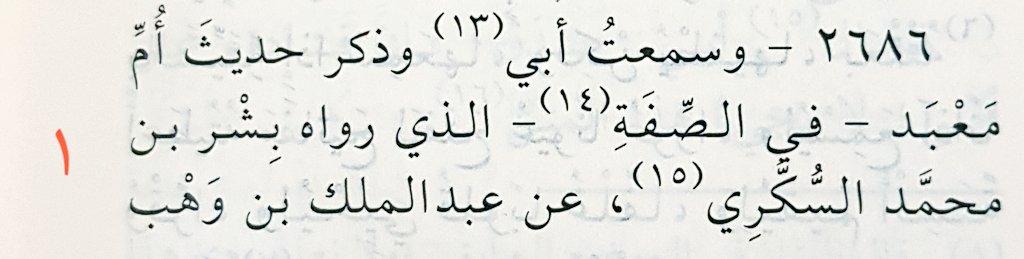 ٢٦٨٦ – وسمعتُ أبي(١٣) وذكر حديثَ أُمِّ
مَعْبَد – في الصِّفَةِ(١٤) – الذي رواه بِشْر بن
محمَّد السُّكَّرِي(١٥)، عن عبدالملك بن وَهْب
١